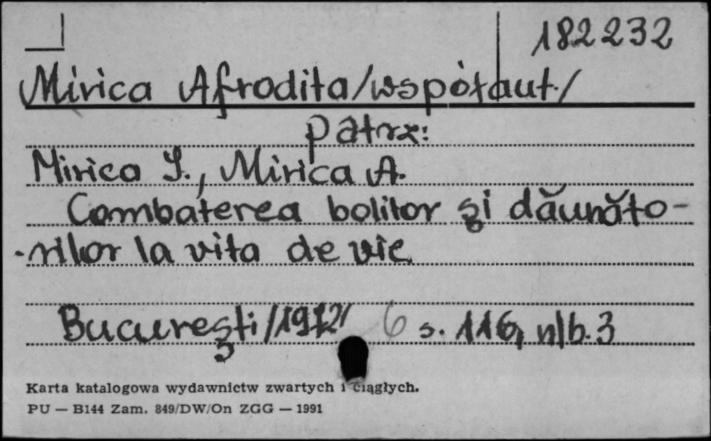 182232
Mirica Afrodita/współaut./
patrz:
Mirica I., Mirica A.
Combaterea bolilor şi dăunăto-
-rilor la vita de vie
Bucureşti /1972/ 6 s. 116, nlb. 3
Karta katalogowa wydawnictw zwartych i ciągłych.
PU — B144 Zam. 849/DW/On ZGG — 1991